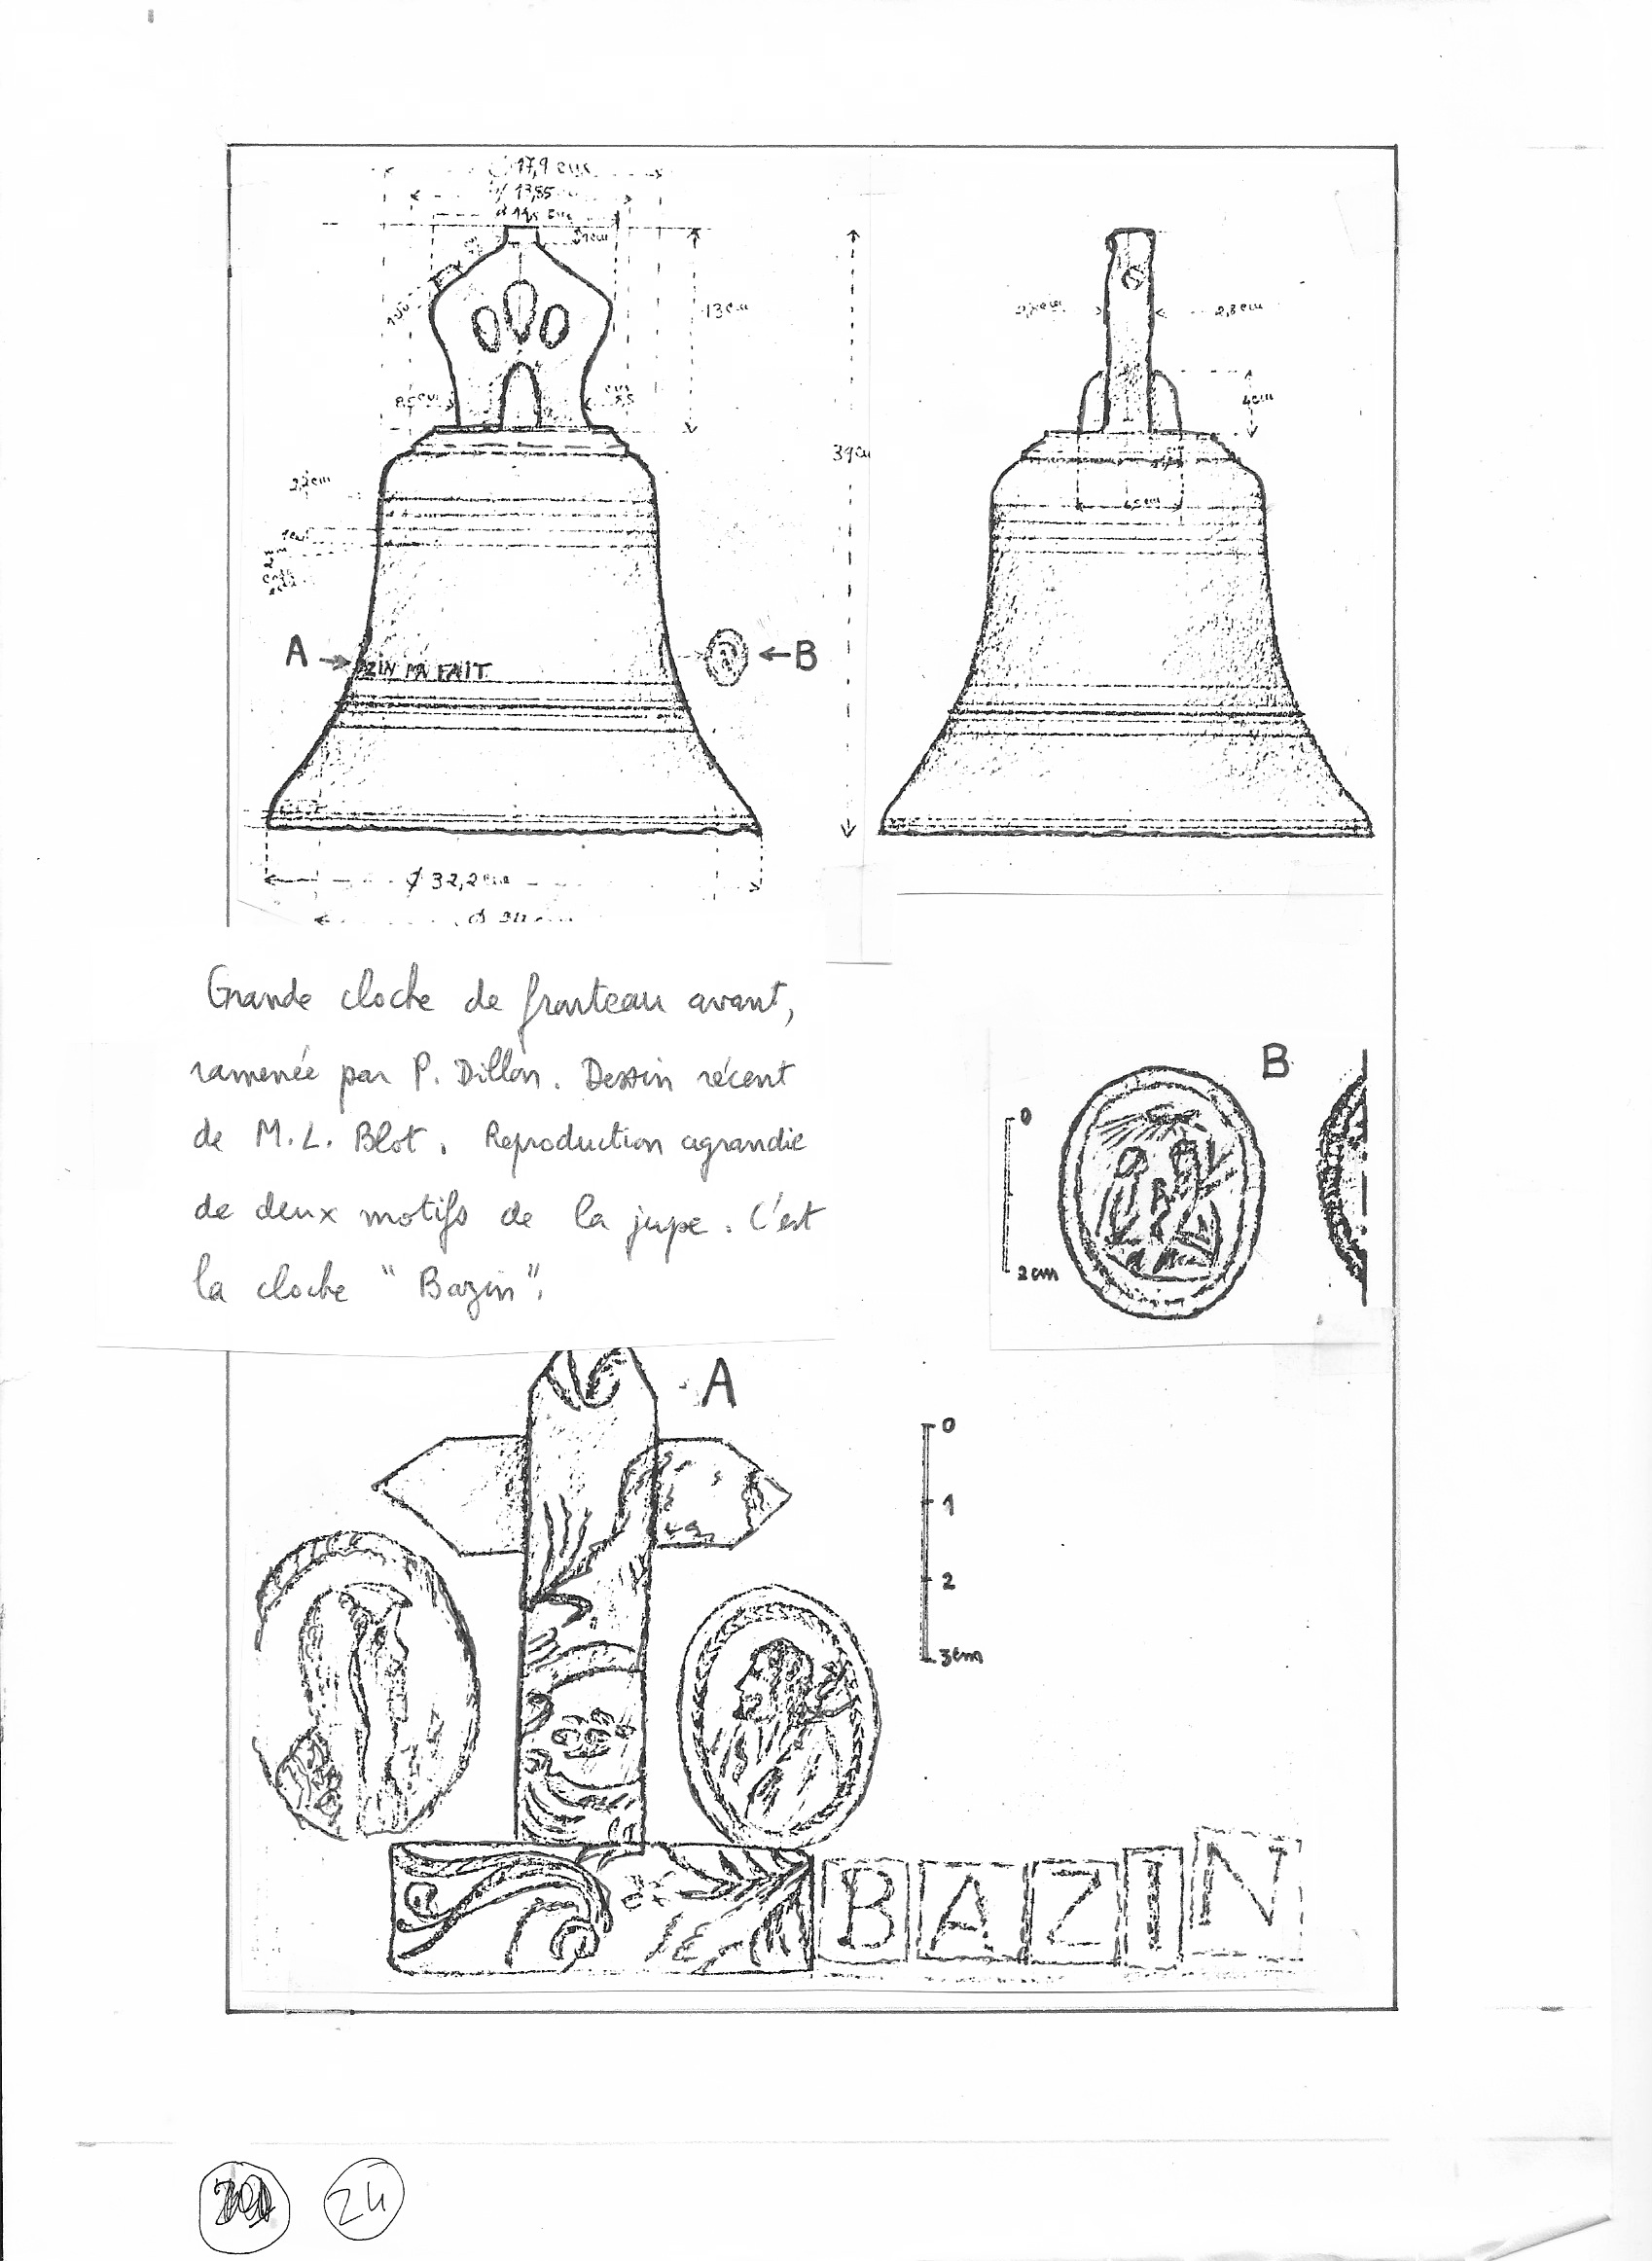 17,9 cms
13,85
1cm
13cm
2,8cm
4cm
39cm
2,2cm
6,5cm
A
ZIN MA FAIT
B
ϕ 32,2cm
Grande cloche de fronteau avant,
ramenée par P. Dillon. Dessin récent
de M.L. Blot. Reproduction agrandie
de deux motifs de la jupe. C'est
la cloche "Bazin".
B
0
2cm
A
0
1
2
3cm
BAZIN
24